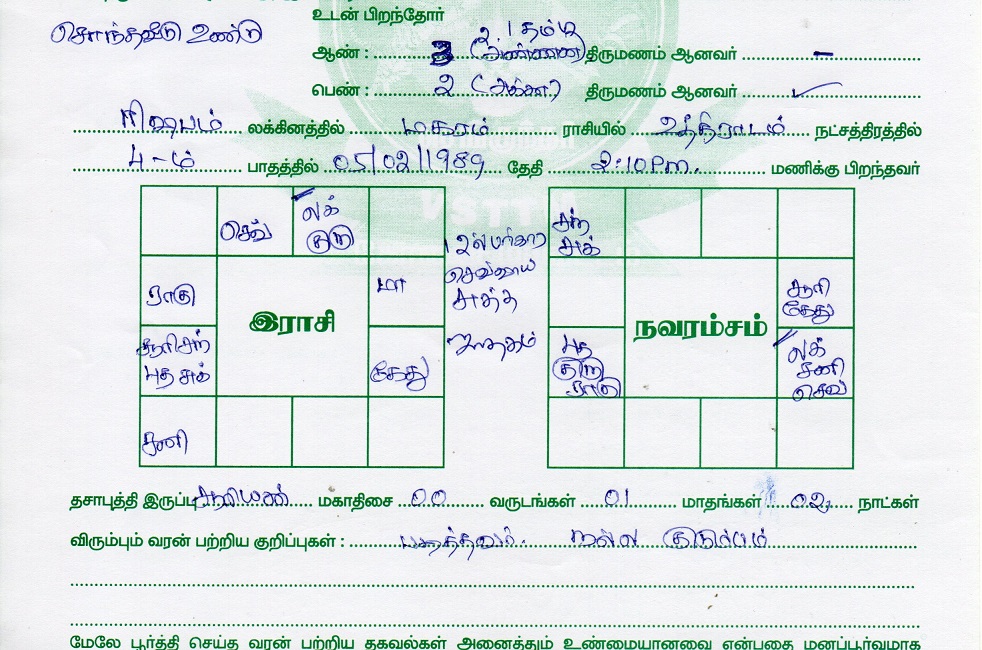 உடன் பிறந்தோர்
சொந்தவீடு உண்டு
2. 1 தம்பி
ஆண் : 3 (அண்ணன்) திருமணம் ஆனவர் –
பெண் : 2 (அக்கா) திருமணம் ஆனவர் ✓
ரிஷபம் லக்கினத்தில் மகரம் ராசியில் உத்திராடம் நட்சத்திரத்தில்
4-ம் பாதத்தில் 05/02/1989 தேதி 2:10 P.m. மணிக்கு பிறந்தவர்
செவ் லக் குரு
ராகு மா
இராசி
சூரி சந் புத சுக் கேது
சனி
12ல் பரிகார செவ்வாய் சுத்த ஜாதகம்
சந் சுக்
சூரி கேது
நவரம்சம்
புத குரு ராகு லக் சனி செவ்
தசாபுத்தி இருப்பு சூரியன் மகாதிசை 00 வருடங்கள் 01 மாதங்கள் 02 நாட்கள்
விரும்பும் வரன் பற்றிய குறிப்புகள் : படித்தவர். நல்ல குடும்பம்
மேலே பூர்த்தி செய்த வரன் பற்றிய தகவல்கள் அனைத்தும் உண்மையானவை என்பதை மனப்பூர்வமாக